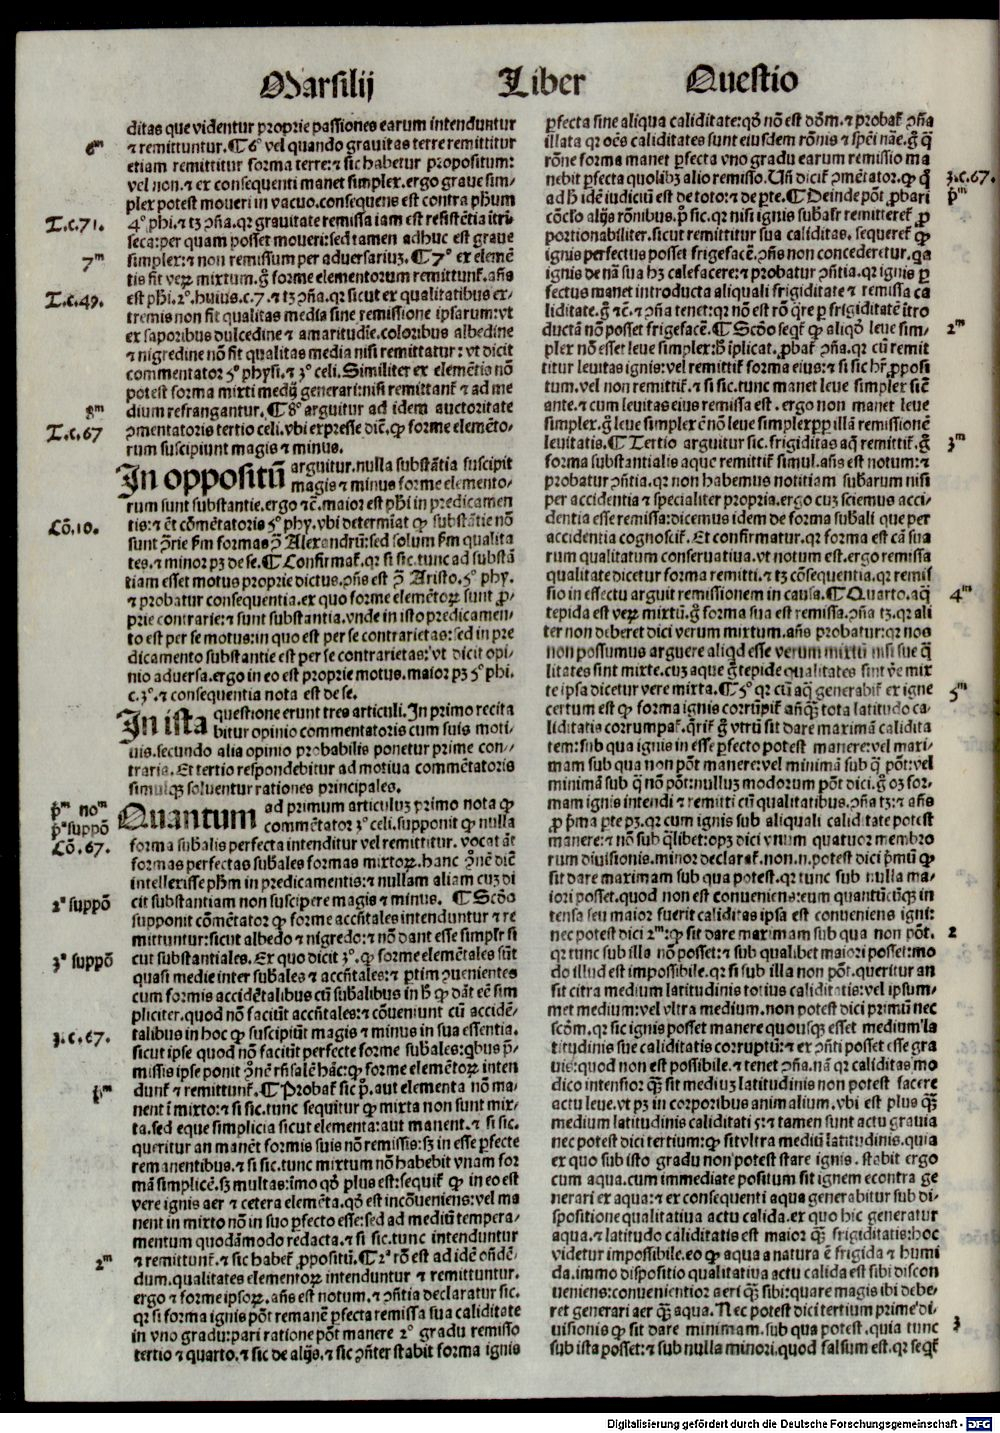 Marsilij Liber Questio
ditas que videntur proprie passiones earum intenduntur
⁊ remittuntur. ¶ 6° vel quando grauitas terre remittitur
etiam remittitur forma terre: ⁊ sic habetur propositum:
vel non. ⁊ ex consequenti manet simplex. ergo graue sim-
plex potest moueri in vacuo. consequens est contra phm
4° phi. ⁊ tꝫ ꝯña. qr grauitate remissa iam est resistẽtia ĩtrĩ
seca: per quam posset moueri: sed tamen adhuc est graue
simplex: ⁊ non remissum per aduersariuꝫ. ¶ 7° ex elemẽ
tis fit veꝝ mixtum. ḡ forme elementorum remittunt̃. añs
est phi. 2°. huius. c. 7. ⁊ tꝫ ꝯña. qr sicut ex qualitatibus ex-
tremis non fit qualitas media sine remissione ipsarum: vt
ex saporibus dulcedine ⁊ amaritudĩe. coloribus albedine
⁊ nigredine nõ fit qualitas media nisi remittatur: vt dicit
commentator 5° physi. ⁊ 3° celi. Similiter ex elemẽtis nõ
potest forma mixti medij generari: nisi remittant̃ ⁊ ad me
dium refrangantur. ¶ 8° arguitur ad idem auctoritate
ꝯmentatoris tertio celi. vbi expresse dic̃. ꝙ forme elemẽto-
rum suscipiunt magis ⁊ minus.
In oppositũ arguitur. nulla substãtia suscipit
magis ⁊ minus forme elemento-
rum sunt substantie. ergo ⁊c̃. maior est phi in predicamen
tis: ⁊ ẽt cõmẽtatoris 5° phy. vbi determiat ꝙ substãtie nõ
sunt ꝯrie ẜm formas ꝯ̃ Alexandrũ: sed solum ẜm qualita
tes. ⁊ minor pꝫ de se. ¶ Confirmat̃. qr si sic. tunc ad substã
tiam esset motus proprie dictus. ꝯñs est ꝯ̃ Aristo. 5° phy.
⁊ probatur consequentia. ex quo forme elemẽtoꝝ sunt ꝓ-
prie contrarie: ⁊ sunt substantia. vnde in isto predicamen-
to est per se motus: in quo est per se contrarietas: sed in pre
dicamento substantie est per se contrarietas: vt dicit opi-
nio aduersa. ergo in eo est proprie motus. maior pꝫ 5° phi.
c. 3°. ⁊ consequentia nota est de se.
In ista questione erunt tres articuli. In primo recita
bitur opinio commentatoris cum suis moti-
uis. secundo alia opinio probabilis ponetur prime con-
traria. Et tertio respondebitur ad motiua commẽtatoris
simulqꝫ soluentur rationes principales.
Quantum ad primum articuluꝫ primo nota ꝙ
commẽtator 3° celi. supponit ꝙ nulla
forma sub̃alis perfecta intenditur vel remittitur. vocat aũt
formas perfectas sub̃ales formas mixtoꝝ. hanc ꝯ̃nẽ dic̃
intellexisse phm in predicamentis: ⁊ nullam aliam cuꝫ di
cit substantiam non suscipere magis ⁊ minus. ¶ Scd̃o
supponit cõmẽtator ꝙ forme accñtales intenduntur ⁊ re
mittuntur: sicut albedo ⁊ nigredo: ⁊ nõ dant esse simplr̃ si
cut substantiales. Ex quo dicit 3°. ꝙ forme elemẽtales sũt
quasi medie inter sub̃ales ⁊ accñtales: ⁊ ꝑtim ꝯuenientes
cum formis accidẽtalibus cũ sub̃alibus in h̃ ꝙ dãt eẽ sim
pliciter. quod nõ faciũt accñtales: ⁊ cõueniunt cũ accidẽ-
talibus in hoc ꝙ suscipiũt magis ⁊ minus in sua essentia.
sicut ipse quod nõ faciũt perfecte forme sub̃ales: qbus p̃-
missis ipse ponit ꝯ̃nẽ rñsalẽ hãc: ꝙ forme elemẽtoꝝ inten
dunt̃ ⁊ remittunt̃. ¶ Probat̃ sic p̃. aut elementa nõ ma-
nent ĩ mixto: ⁊ si sic. tunc sequitur ꝙ mixta non sunt mix-
ta. sed eque simplicia sicut elementa: aut manent. ⁊ si sic.
queritur an manẽt formis suis nõ remissis: sꝫ in esse ꝑfecte
remanentibus. ⁊ si sic. tunc mixtum nõ habebit vnam for
mã simplicẽ. sꝫ multas: ĩmo qd̃ plus est: sequit̃ ꝙ in eo est
vere ignis aer ⁊ cetera elemẽta. qd̃ est incõueniens: vel ma
nent in mixto nõ in suo ꝑfecto esse: sed ad mediũ tempera-
mentum quodãmodo redacta. ⁊ si sic. tunc intenduntur
⁊ remittunt̃. ⁊ sic habet̃ ꝓpositũ. ¶ 2ª rõ est ad idẽ oñdẽ-
dum. qualitates elementoꝝ intenduntur ⁊ remittuntur.
ergo ⁊ forme ipsoꝝ. añs est notum. ⁊ ꝯñtia declaratur sic.
qr si forma ignis põt remanẽ ꝑfecta remissa sua caliditate
in vno gradu: pari ratione põt manere 2° gradu remisso
tertio ⁊ quarto. ⁊ sic de alijs. ⁊ sic ꝯñter stabit forma ignis
6m
T.c.71.
7m
T.c.49.
8m
T.c.67
Cõ.10.
p̃m nom
p̃ª suppõ
Cõ.67.
2ª suppõ
3ª suppõ
3.c.67.
p̃m
2m
ꝑfecta sine aliqua caliditate: qd̃ nõ est dõm. ⁊ probat̃ ꝯña
illata qr oẽs caliditates sunt eiusdem rõnis ⁊ spẽi nãe. ḡ q̃
rõne forma manet ꝑfecta vno gradu earum remissio ma
nebit ꝑfecta quolibꝫ alio remisso. Uñ dicit̃ ꝯmẽtator. ꝙ q̃
ad h̃ idẽ iudiciũ est de toto: ⁊ de ꝑte. ¶ Deinde põt ꝓbari
cõclo alijs rõnibus. p̃ sic. qr nisi ignis sub̃alr̃ remitteret̃ ꝓ
portionabiliter. sicut remittitur sua caliditas. sequeret̃ ꝙ
ignis perfectus posset frigefacẽ. ꝯñs non concederetur. qa
ignis de nã sua hꝫ calefacere: ⁊ probatur ꝯñtia. qr ignis ꝑ
fectus manet introducta aliquali frigiditate ⁊ remissa ca
liditate. ḡ ⁊c̃. ⁊ ꝯña tenet: qr nõ est rõ q̃re ꝑ frigiditatẽ ĩtro
ductã nõ posset frigefacẽ. ¶ Scd̃o seqt̃ ꝙ aliqd̃ leue sim-
plex nõ esset leue simplex: h̃ ĩplicat. ꝓbat̃ ꝯña. qr cũ remit
titur leuitas ignis: vel remittit̃ forma eius: ⁊ si sic hr̃ ꝓposi
tum. vel non remittit̃. ⁊ si sic. tunc manet leue simplex sic̃
ante. ⁊ cum leuitas eius remissa est. ergo non manet leue
simplex. ḡ leue simplex ẽ nõ leue simplex ꝓp̃ illã remissionẽ
leuitatis. ¶ Tertio arguitur sic. frigiditas aq̃ remittit̃. ḡ
forma substantialis aque remittit̃ simul. añs est notum: ⁊
probatur ꝯñtia. qr non habemus notitiam sub̃arum nisi
per accidentia ⁊ specialiter propria. ergo cuꝫ sciemus acci-
dentia esse remissa: dicemus idem de forma sub̃ali que per
accidentia cognoscit̃. Et confirmatur. qr forma est cã sua
rum qualitatum conseruatiua. vt notum est. ergo remissa
qualitate dicetur forma remitti. ⁊ tꝫ cõsequentia. qr remis
sio in effectu arguit remissionem in causa. ¶ Quarto. aq̃
tepida est veꝝ mixtũ. ḡ forma sua est remissa. ꝯña tꝫ. qr ali
ter non deberet dici verum mixtum. añs probatur: qr nos
non possumus arguere aliqd esse verum mixtũ nisi sue q̃
litates sint mixte. cuꝫ aque ḡ tepide qualitates sint ṽe mix
te ipsa dicetur vere mixta. ¶ 5° qr cũ aq̃ generabit̃ ex igne
certum est ꝙ forma ignis corrũpit̃ añq̃ꝫ tota latitudo ca-
liditatis corrumpat̃. q̃rit̃ ḡ vtrũ sit dare maximã calidita
tem: sub qua ignis in esse ꝑfecto potest manere: vel maxi-
mam sub qua non põt manere: vel minimã sub q̃ põt: vel
minimã sub q̃ nõ põt: nulluꝫ modorum põt dici. ḡ oꝫ for-
mam ignis intendi ⁊ remitti cũ qualitatibus. ꝯña tꝫ: ⁊ añs
ꝓ p̃ma ꝑte pꝫ. qr cum ignis sub aliquali caliditate potest
manere: ⁊ nõ sub q̃libet: opꝫ dici vnum quatuor membro
rum diuisionis. minor declarat̃. non. n. potest dici p̃mũ ꝙ
sit dare maximam sub qua potest. qr tunc sub nulla ma-
iori posset. quod non est conueniens: eum quantũcũqꝫ in
tensa seu maior fuerit caliditas ipsa est conueniens igni:
nec potest dici 2m: ꝙ sit dare maximam sub qua non põt.
qr tunc sub illa nõ posset: ⁊ sub qualibet maiori posset: mo
do illud est impossibile. qr si sub illa non põt. queritur an
sit citra medium latitudinis totius caliditatis: vel ipsum-
met medium: vel vltra medium. non potest dici primũ nec
scd̃m. qr sic ignis posset manere quousqꝫ esset medium la
titudinis sue caliditatis corruptũ: ⁊ ex ꝯñti posset esse gra
uis: quod non est possibile. ⁊ tenet ꝯña. nã qr caliditas mo
dico intensior q̃ꝫ sit mediuꝫ latitudinis non potest facere
actu leue. vt pꝫ in corporibus animalium. vbi est plus q̃ꝫ
medium latitudinis caliditati s: ⁊ tamen sunt actu grauia
nec potest dici tertium: ꝙ sit vltra mediũ latitudinis. quia
ex quo sub isto gradu non potest stare ignis. stabit ergo
cum aqua. cum immediate positum sit ignem econtra ge
nerari ex aqua: ⁊ ex consequenti aqua generabitur sub di-
spositione qualitatiua actu calida. ex quo hic generatur
aqua. ⁊ latitudo caliditatis est maior q̃ꝫ frigiditatis: hoc
videtur impossibile. eo ꝙ aqua a natura ẽ frigida ⁊ humi
da. immo dispositio qualitatiua actu calida est sibi discon
ueniens: conuenientior aeri q̃ꝫ sibi: quare magis ibi debe-
ret generari aer q̃ꝫ aqua. Nec potest dici tertium prime di-
uisionis ꝙ sit dare minimam. sub qua potest. quia tunc
sub ista posset: ⁊ sub nulla minori. quod falsum est. qr seqt̃
3.c.67.
p̃m
2m
3m
4m
5m
2
3
Digitalisierung gefördert durch die Deutsche Forschungsgemeinschaft - DFG